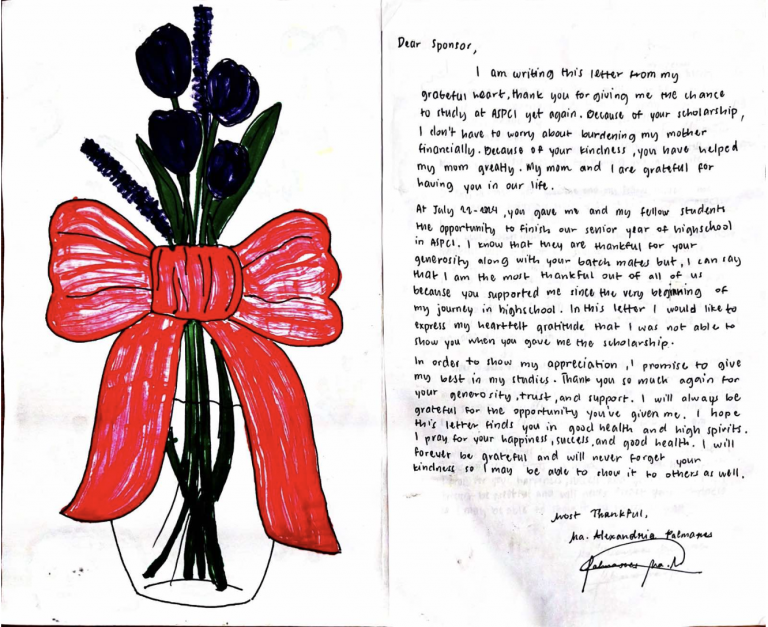 Dear Sponsor,
I am writing this letter from my
grateful heart, thank you for giving me the chance
to study at ASPCI yet again. Because of your scholarship,
I don't have to worry about burdening my mother
financially. Because of your kindness, you have helped
my mom greatly. My mom and I are grateful for
having you in our life.
At July 22-2024, you gave me and my fellow students
the opportunity to finish our senior year of highschool
in ASPCI. I know that they are thankful for your
generosity along with your batch mates but, I can say
that I am the most thankful out of all of us
because you supported me since the very beginning of
my journey in highschool. In this letter I would like to
express my heartfelt gratitude that I was not able to
show you when you gave me the scholarship.
In order to show my appreciation, I promise to give
my best in my studies. Thank you so much again for
your generosity, trust, and support. I will always be
grateful for the opportunity you've given me. I hope
this letter finds you in good health and high spirits.
I pray for your happiness, success, and good health. I will
forever be grateful and will never forget your
kindness so I may be able to show it to others as well.
Most Thankful,
Ma. Alexandria Palmares
Palmares Ma.